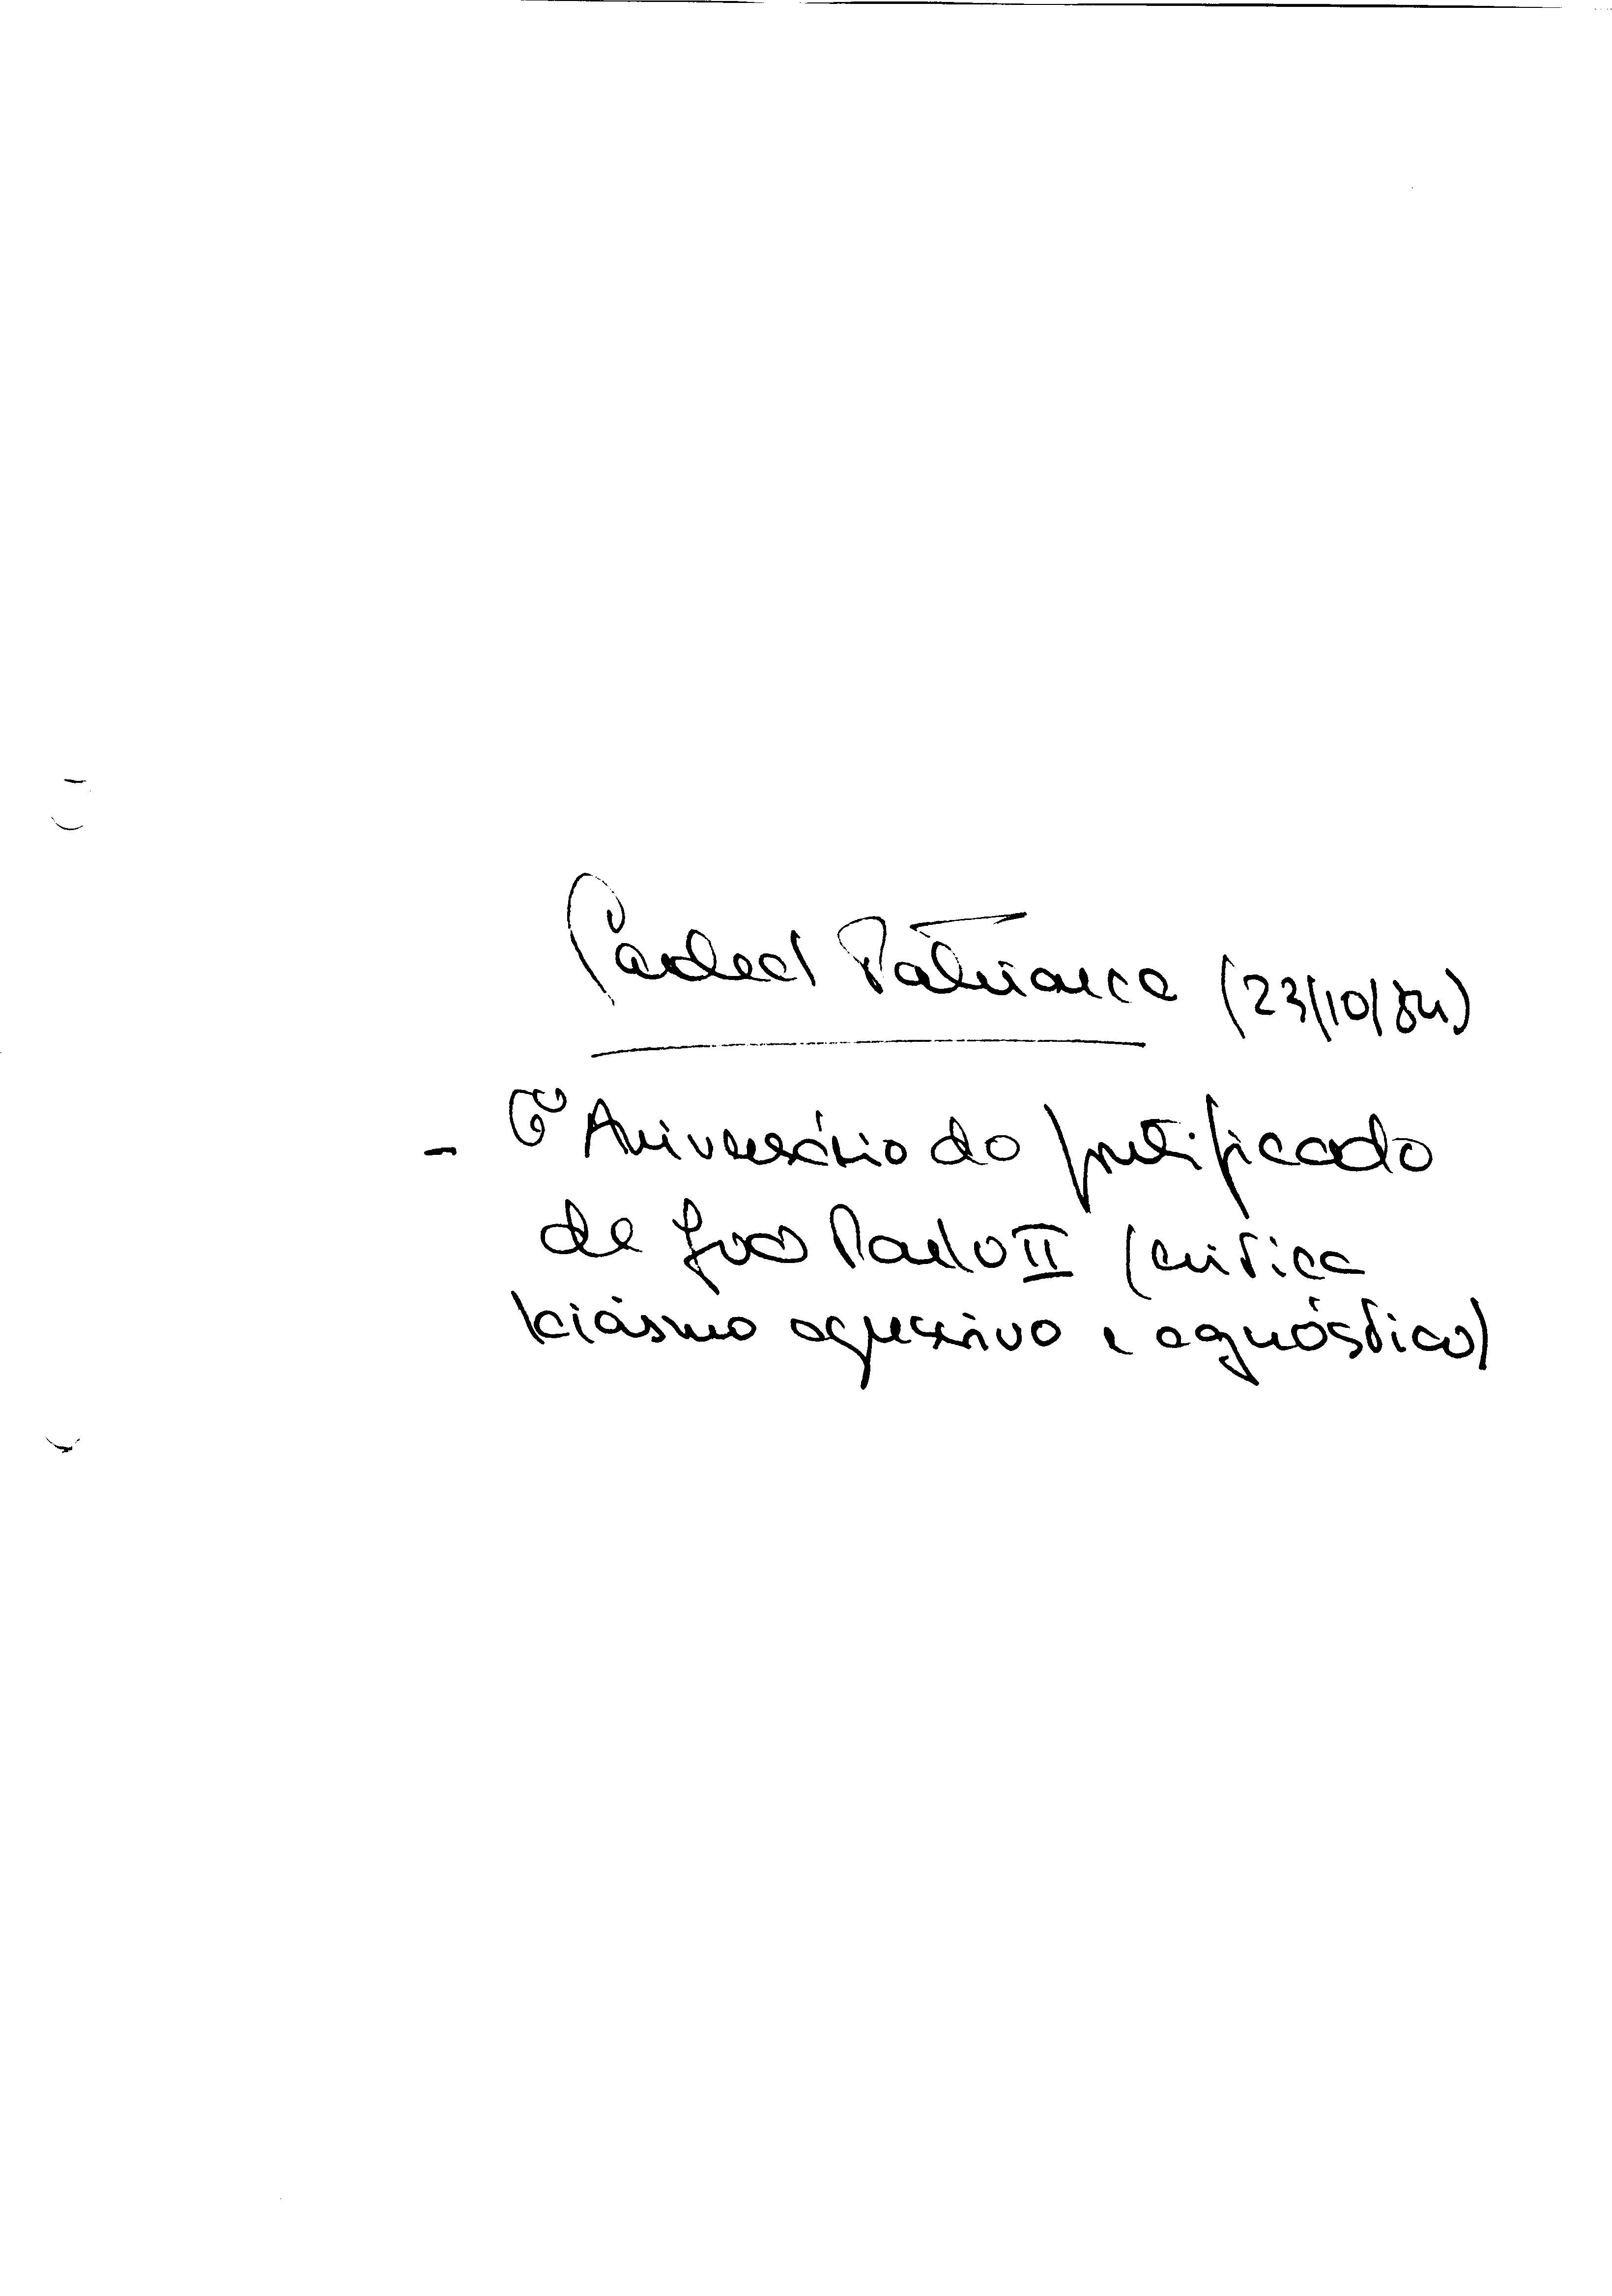 Cardeal Patriarca (23/10/84)
- 6º Aniversário do pontificado
de João Paulo II (critica
laicismo agressivo e agnóstico)